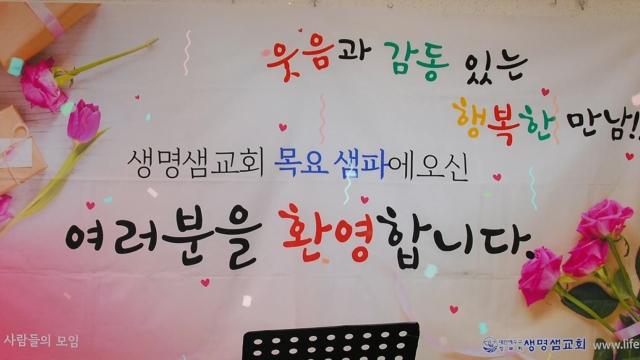 웃음과 감동 있는
행복한 만남!!
생명샘교회 목요 샘파에오신
여러분을 환영합니다.
사람들의 모임
생명샘교회 www.life